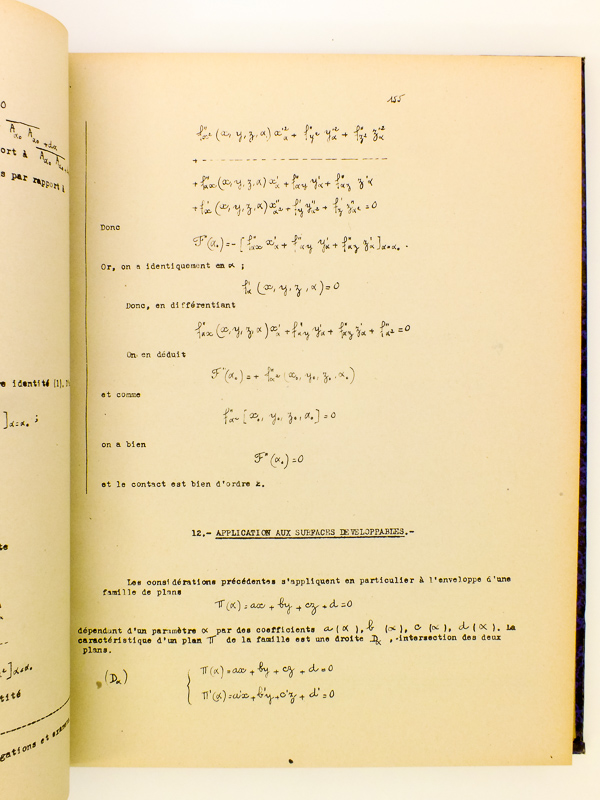 0
ort à
s par rapport à
e identité (1).
]α=α₀ ;
te
]α=α₀
tité
gations et
155
f''x² (x, y, z, α) x'α² + f''y² y'α² + f''z² z'α²
+ - - - - - - - - - - - - - - - - - - - -
+ f''αx (x, y, z, α) x'α + f''αy y'α + f''αz z'α
+ f'x (x, y, z, α) x''α² + f'y y''α² + f'z z''α² = 0
Donc
F''(α₀) = - [ f''αx x'α + f''αy y'α + f''αz z'α ]α=α₀ .
Or, on a identiquement en α ;
f'α (x, y, z, α) = 0
Donc, en différentiant
f''αx (x, y, z, α) x'α + f''αy y'α + f''αz z'α + f''α² = 0
On en déduit
F''(α₀) = + f''α² (x₀, y₀, z₀, α₀)
et comme
f''α² [x₀, y₀, z₀, α₀] = 0
on a bien
F''(α₀) = 0
et le contact est bien d'ordre 2.
12.- APPLICATION AUX SURFACES DEVELOPPABLES.-
Les considérations précédentes s'appliquent en particulier à l'enveloppe d'une
famille de plans
Π(α) = ax + by + cz + d = 0
dépendant d'un paramètre α par des coefficients a(α), b(α), c(α), d(α). La
caractéristique d'un plan Π de la famille est une droite Dα, intersection des deux
plans.
(Dα) { Π(α) = ax + by + cz + d = 0
Π'(α) = a'x + b'y + c'z + d' = 0